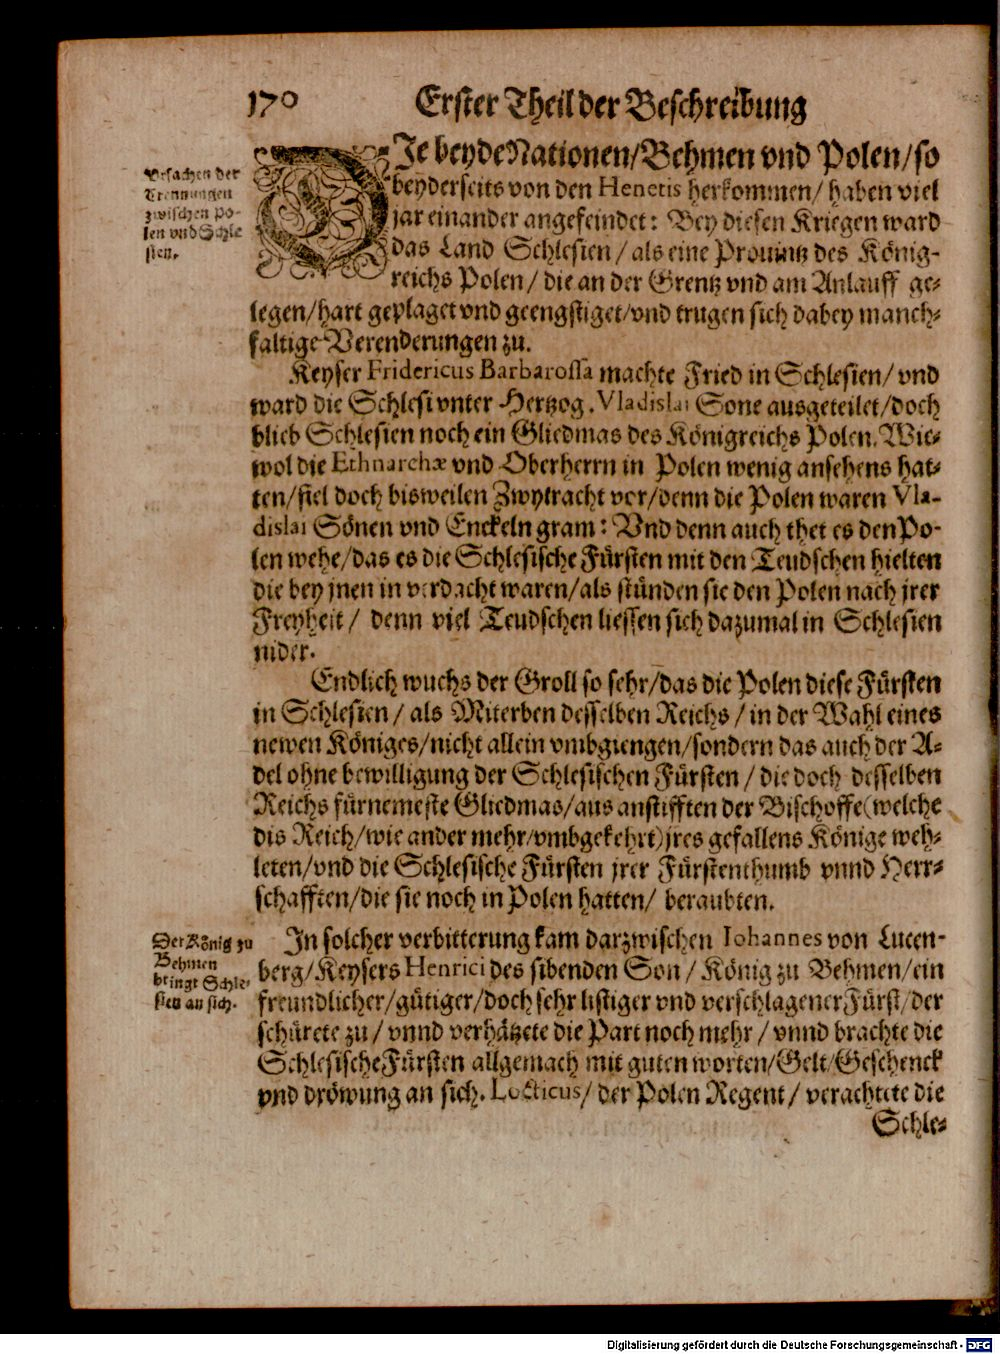 170 Erster Theil der Beschreibung
Vrsachen der
Trennungen
zwischen Po-
len vnd Schle
sien.
DIe beyde Nationen/Behmen vnd Polen/so
beyderseits von den Henetis herkommen/ haben viel
jar einander angefeindet: Bey diesen Kriegen ward
das Land Schlesien / als eine Prouintz des König-
reichs Polen/ die an der Grentz vnd am Anlauff ge-
legen/hart geplaget vnd geengstiget/vnd trugen sich dabey manch-
faltige Verenderungen zu.
Keyser Fridericus Barbarossa machte Fried in Schlesien/ vnd
ward die Schlesi vnter Hertzog. Vladislai Söne ausgeteilet/doch
blieb Schlesien noch ein Gliedmas des Königreichs Polen. Wie-
wol die Ethnarchæ vnd Oberherrn in Polen wenig ansehens hat-
ten/fiel doch bisweilen Zwytracht vor/denn die Polen waren Vla-
dislai Sönen vnd Enckeln gram: Vnd denn auch thet es den Po-
len wehe/das es die Schlesische Fürsten mit den Teudschen hielten
die bey jnen in verdacht waren/als stünden sie den Polen nach jrer
Freyheit/ denn viel Teudschen liessen sich dazumal in Schlesien
nider.
Endlich wuchs der Groll so sehr/das die Polen diese Fürsten
in Schlesien / als Miterben desselben Reichs / in der Wahl eines
newen Königes/nicht allein vmbgiengen/sondern das auch der A-
del ohne bewilligung der Schlesischen Fürsten / die doch desselben
Reichs fürnemeste Gliedmas/aus anstifften der Bischoffe(welche
dis Reich/wie ander mehr/vmbgekehrt)jres gefallens Könige weh-
leten/vnd die Schlesische Fürsten jrer Fürstenthumb vnnd Herr-
schafften/die sie noch in Polen hatten/ beraubten.
Der König zu
Behmen
bringt Schle-
sien an sich.
In solcher verbitterung kam darzwischen Iohannes von Lucen-
berg/Keysers Henrici des sibenden Son / König zu Behmen/ein
freundlicher/gütiger/doch sehr listiger vnd verschlagener Fürst/der
schürete zu / vnnd verhätzete die Part noch mehr / vnnd brachte die
Schlesische Fürsten allgemach mit guten worten/Gelt/Geschenck
vnd dröwung an sich. Locticus/ der Polen Regent/ verachtete die
Schle-
Digitalisierung gefördert durch die Deutsche Forschungsgemeinschaft - DFG